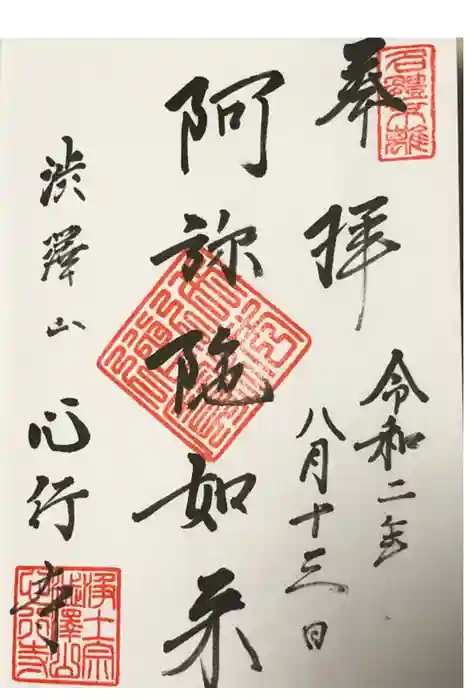 奉拝
令和二年
八月十三日
阿弥陀如来
渋澤山
心行寺
名體不離
浄土宗
渋澤山
心行寺